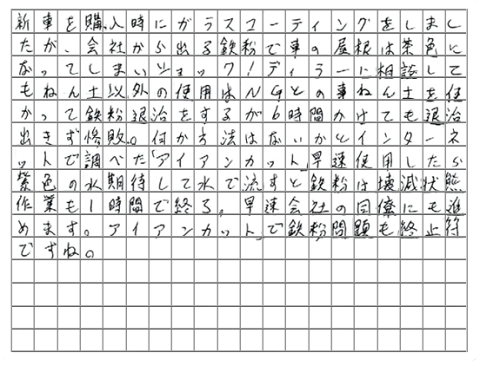 新車を購入時にガラスコーティングをしまし
たが、会社から出る鉄粉で車の屋根は茶色に
なってしまいショック!ディラーに相談して
もねん土以外の使用はNGとの事ねん土を使
かって鉄粉退治をするが6時間かけても退治
出きず惨敗。何か方法はないかとインターネ
ットで調べた「アイアンカット」早速使用したら
紫色の水期待して水で流すと鉄粉は壊滅状態
作業も1時間で終る。早速会社の同僚にも進
めます。アイアンカット」で鉄粉問題も終止符
ですね。